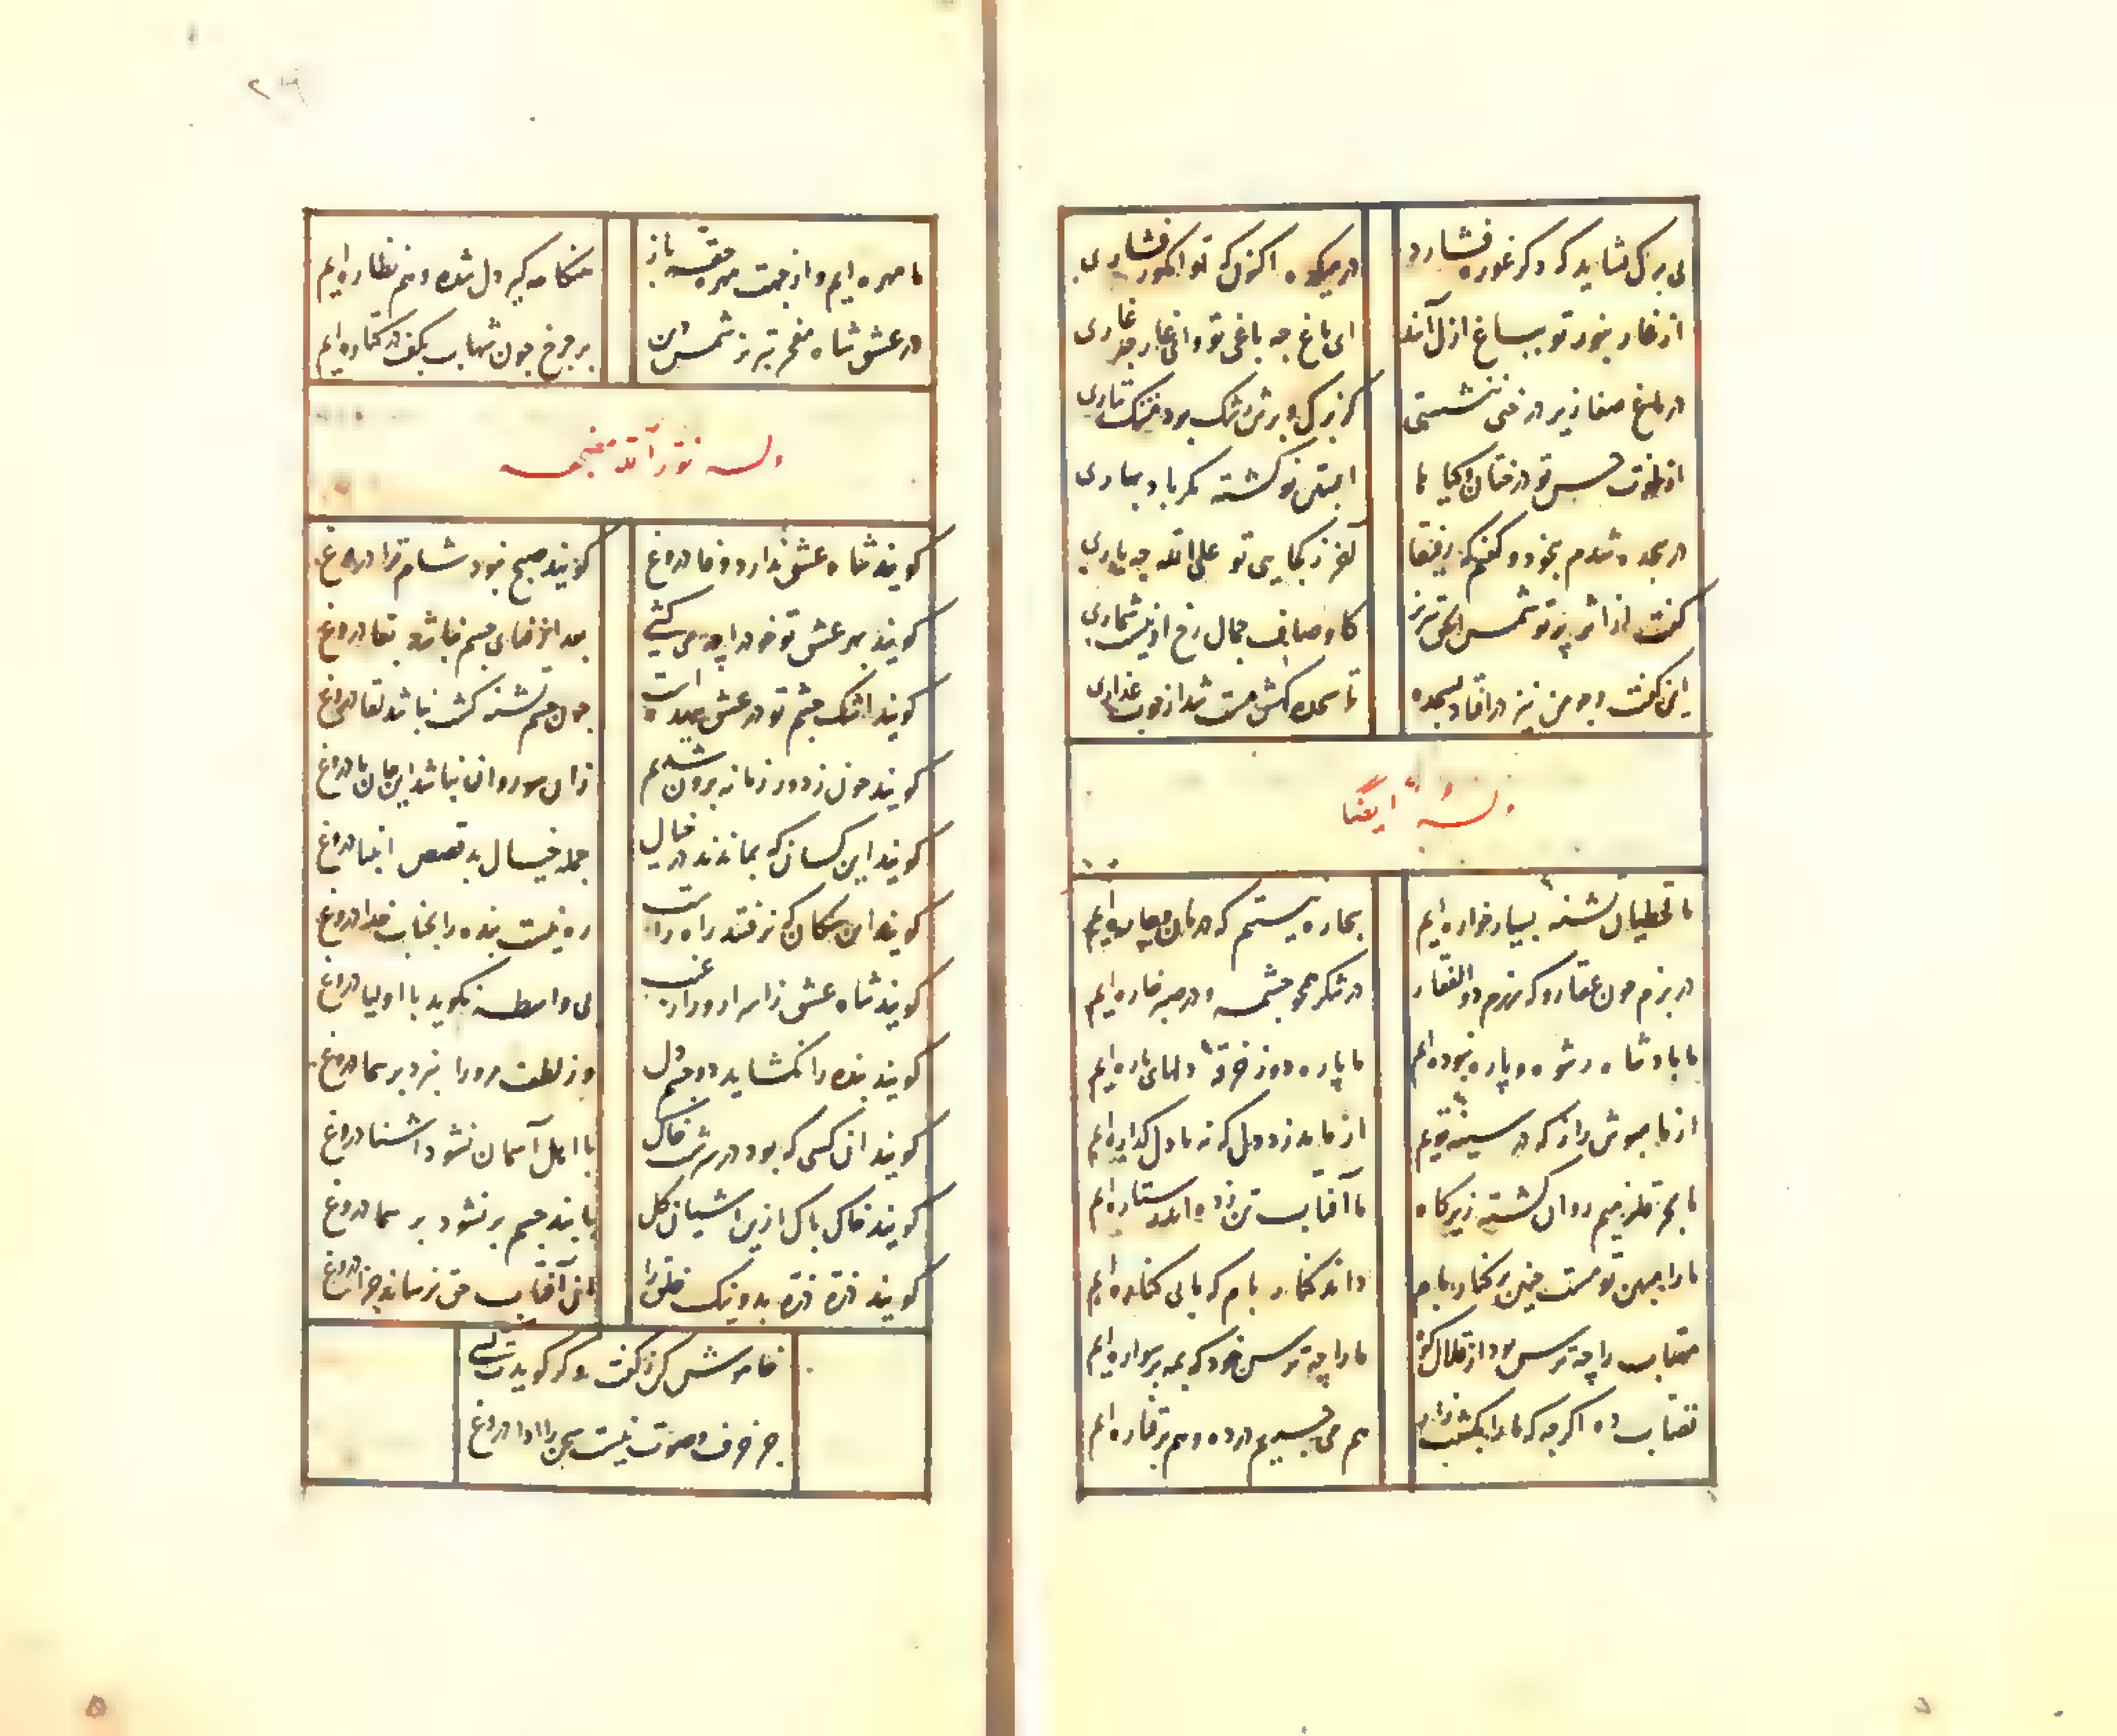 بی برک شاید که دکر غوره فشارد
در میکده اکنون که تو انکور فشاری
از خار بنور تو بباغ ازل آمد
ای باغ چه باغی تو و ای غار چه غاری
در باغ صفا زیر درختی بنشستی
کز برک و برش مشک بود مشک تتاری
از لذت حسن تو درختان و کیا ها
آبستن تو کشته مکر باد بهاری
در سجده شدم بیخود و کفتم که رفیقا
آخر ز کجایی تو علی الله چه یاری
کفت از اثر پرتو شمس الحق تبریز
کاوصاف جمال رخ او نیست شماری
این کفت و جو من نیز در افتاد بسجده
تا سجده کنش مست شد از خوب عذاری
وله ایضا
ما قحطیان تشنه بسیار خواره ایم
بیچاره نیستیم که درمان و چاره ایم
در بزم چون عقار و که رزم ذوالفقار
در شکر همچو چشمه و در صبر خاره ایم
ما پادشاه رشوه و پاره نبوده ایم
ما پاره دوز خرقه دلهای پاره ایم
از ما مپوش راز که در سینه توییم
از ما مدزد دل که نه ما دل کذاره ایم
ما بحر قلزمیم روان کشته زیر کاه
ما آفتاب تن زده اندر ستاره ایم
ما را مبین تو مست چنین بر کنار بام
داند کنار بام که ما بی کناره ایم
مهتاب را چه ترس بود از کنار کو
ما را چه ترس خود که بمه بر سواره ایم
قصاب ده اکرچه که ما را بکشت زار
هم می چریم در ده و هم بر قناره ایم
۲۹
ما مهره ایم و از جهت مهره حقه باز
هنکامه کیر دل شده و هم نظاره ایم
در عشق شاه مفخر تبریز شمس دین
بر چرخ چون شهاب بکف در کناره ایم
وله نور الله مضجعه
کویند شاه عشق ندارد وفا دروغ
کویند صبح نبود شام ترا دروغ
کویند بهر عشق تو خود را چه می کشی
بعد از فنای جسم نباشد بقا دروغ
کویند اشک چشم تو در عشق بیهده است
چون چشم بسته کشت نباشد لقا دروغ
کویند چون ز دور زمانه برون شدیم
زان سو روان نباشد این جان ما دروغ
کویند این کسان که بماندند در خیال
جمله خیال بد قصص انبیا دروغ
کویند این سکان که نرفتند راه راست
ره نیست بنده را بجناب خدا دروغ
کویند شاه عشق ز اسرار و راز غیب
بی واسطه نکوید با اولیا دروغ
کویند بنده را نکشاید دو چشم دل
وز لطف مرورا نبرد بر سما دروغ
کویند آن کسی که بود در سرشت خاک
با اهل آسمان نشود آشنا دروغ
کویند خاک پاک ازین آشیان کل
با بند جسم بر نشود بر سما دروغ
کویند ذره ذره بد و نیک خلق را
آن آفتاب حق نرساند جزا دروغ
خاموش کن ز کفت و کر کویدت کسی
جز حرف و صوت نیست سخن را ادا دروغ